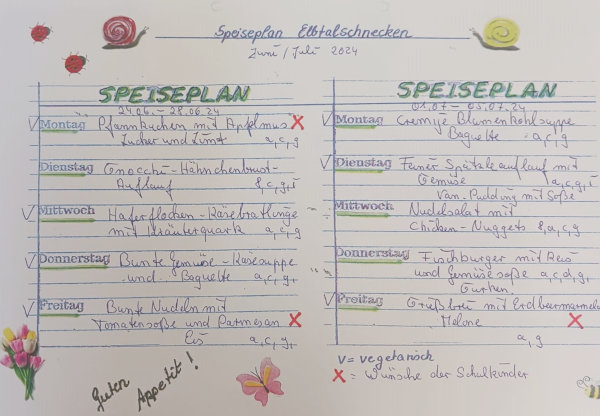 Speiseplan Elbtalschnecken
Juni / Juli 2024
SPEISEPLAN
24.06. – 28.06.24
V Montag Pfannkuchen mit Apfelmus X
Zucker und Zimt a, c, g
Dienstag Gnocchi - Hähnchenbrust-
Auflauf
V Mittwoch Haferflocken - Käsebratlinge
mit Kräuterquark a, c, g
V Donnerstag Bunte Gemüse - Käsesuppe
und Baguette a, c, g,
V Freitag Bunte Nudeln mit
Tomatensoße und Parmesan X
Eis a, c, g,
Guten
Appetit!
SPEISEPLAN
01.07 – 05.07.24
V Montag Cremige Blumenkohlsuppe
Baguette a, c, g
V Dienstag Feiner Spätzleauflauf mit
Gemüse a, c, g, i
Van.-Pudding mit Soße
Mittwoch Nudelsalat mit
Chicken - Nuggets a, c, g
Donnerstag Fischburger mit Reis
und Gemüsesoße a, c, d, g,
Gurken!
V Freitag Grießbrei mit Erdbeermarmela
Melone X
a, g
V = vegetarisch
X = Wünsche der Schulkinder